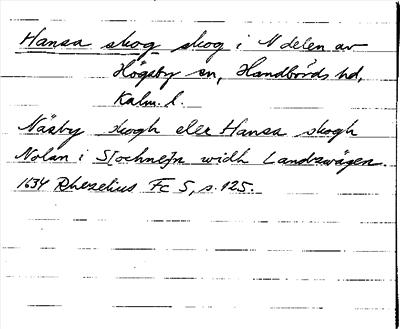 Hansa skog skog i N delen av
Högsby sn, Handbörds hd,
Kalm. l.
Näsby skogh eler Hansa skogh
Nolan i S[ochne]n widh Landzwägen
1634 Rhezelius Fc 5, s. 125.